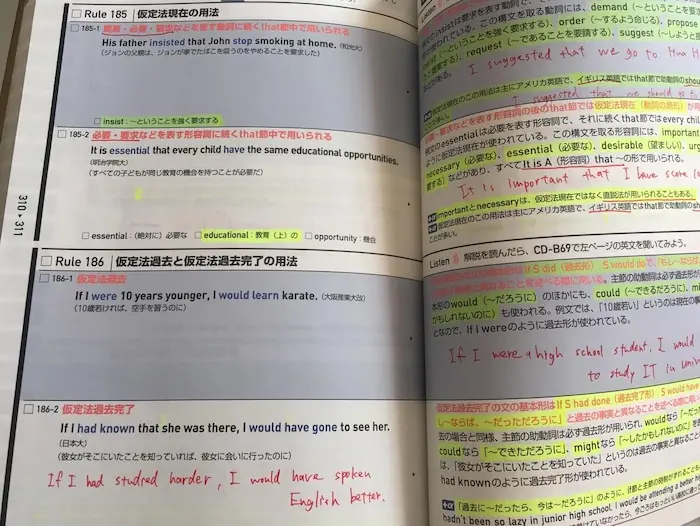 Rule 185 仮定法現在の用法
185-1 提案・必要・要求などを表す動詞に続くthat節中で用いられる
His father insisted that John stop smoking at home. (和光大)
(ジョンの父親は、ジョンが家でたばこを吸うのをやめることを要求した)
insist:～ということを強く要求する
185-2 必要・要求などを表す形容詞に続くthat節中で用いられる
It is essential that every child have the same educational opportunities.
(明治学院大)
(すべての子どもが同じ教育の機会を持つことが必要だ)
essential:(絶対に)必要な educational:教育(上)の opportunity:機会
310・311
Rule 186 仮定法過去と仮定法過去完了の用法
186-1 仮定法過去
If I were 10 years younger, I would learn karate. (大阪産業大改)
(10歳若ければ、空手を習うのに)
186-2 仮定法過去完了
If I had known that she was there, I would have gone to see her.
(日本大)
(彼女がそこにいたことを知っていれば、彼女に会いに行ったのに)
If I had studied harder, I would have spoken
English better.
insistは要求を表す動詞で、
いている。この構文を取る動詞には、demand (～ということを要
～ということを強く要求する)、order (～するよう命じる)、propose
request (～であることを要請する)、suggest (～しようと
I suggested that we go to Hua H
仮定法現在の用法は主にアメリカ英語で、イギリス英語ではthat節で助動詞のshou
I suggested that we should go to
要求などを表す形容詞の後のthat節では仮定法現在(動詞の原形)が
例文のessentialは必要を表す形容詞で、それに続くthat節ではevery chil
ように仮定法現在が使われている。この構文を取る形容詞には、important
necessary (必要な)、essential (必要な)、desirable (望ましい)、urg
要する)などがあり、すべてIt is A (形容詞) that ～の形で用いられる。
It is important that I have
importantとnecessaryは、仮定法現在ではなく直説法が用いられることもある。
仮定法現在のこの用法は主にアメリカ英語で、イギリス英語ではthat節で助動詞のsho
ことが多い。
Listen 解説を読んだら、CD-B69で左ページの英文を聞いてみよう。
仮定法過去の文の基本形はIf S did (過去形), S would do で、「もし～なら
主節の助動詞は必ず過去
本形のwould (～だろうに)のほかにも、could (～できるだろうに)、mi
かもしれないのに)も使われる。例文では、「10歳若い」というのは現在の事
となので、If I wereのように過去形が使われている。
If I were a high school student, I would
to study IT in univ
仮定法過去完了の文の基本形はIf S had done (過去完了形), S would have
し～ならば、～だっただろうに」と過去の事実と異なることを述べる際に用い
去の場合と同様、主節の助動詞は必ず過去形が用いられ、wouldなら「～だ
couldなら「～できただろうに」、mightなら「～したかもしれないのに」を
は、「彼女がそこにいたことを知っていた」というのは過去の事実と異なるこ
had knownのように過去完了形が使われている。
「過去に～だったら、今は～だろうに」のように、if節と主節の時制がずれることも
hadn't been so lazy in junior high school, I would be attending a better high